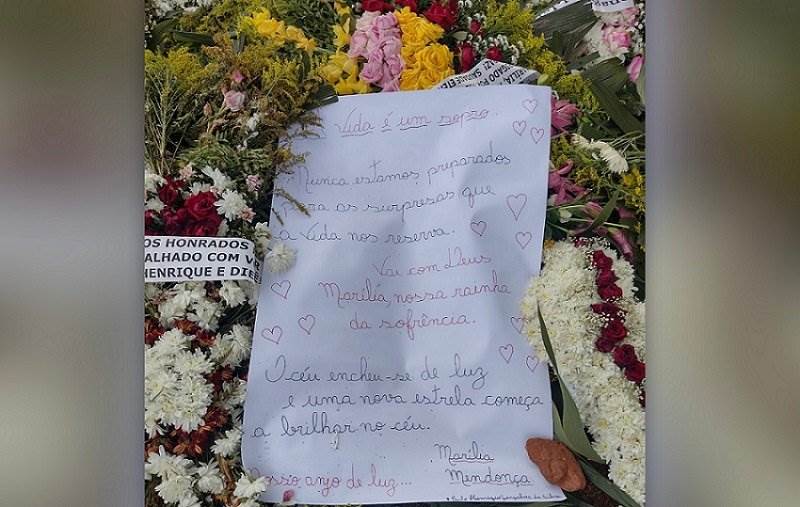 Vida é um sopro...
Nunca estamos preparados
para as surpresas que
a vida nos reserva.
Vai com Deus
Marília, nossa rainha
da sofrência.
O céu encheu-se de luz
e uma nova estrela começa
a brilhar no céu.
Marília
Mendonça
Nosso anjo de luz...
OS HONRADOS
ALHADO COM
HENRIQUE E